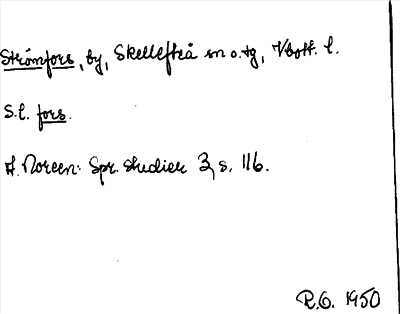 Strömfors, by, Skellefteå sn o. tg, Vbott. l.
S.l. fors.
A. Noreen: Spr. studier 3, s. 116.
R.O. 1950